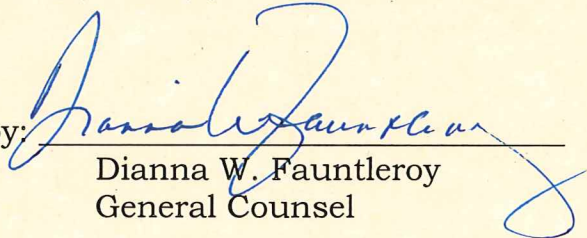 by: Dianna W. Fauntleroy
Dianna W. Fauntleroy
General Counsel